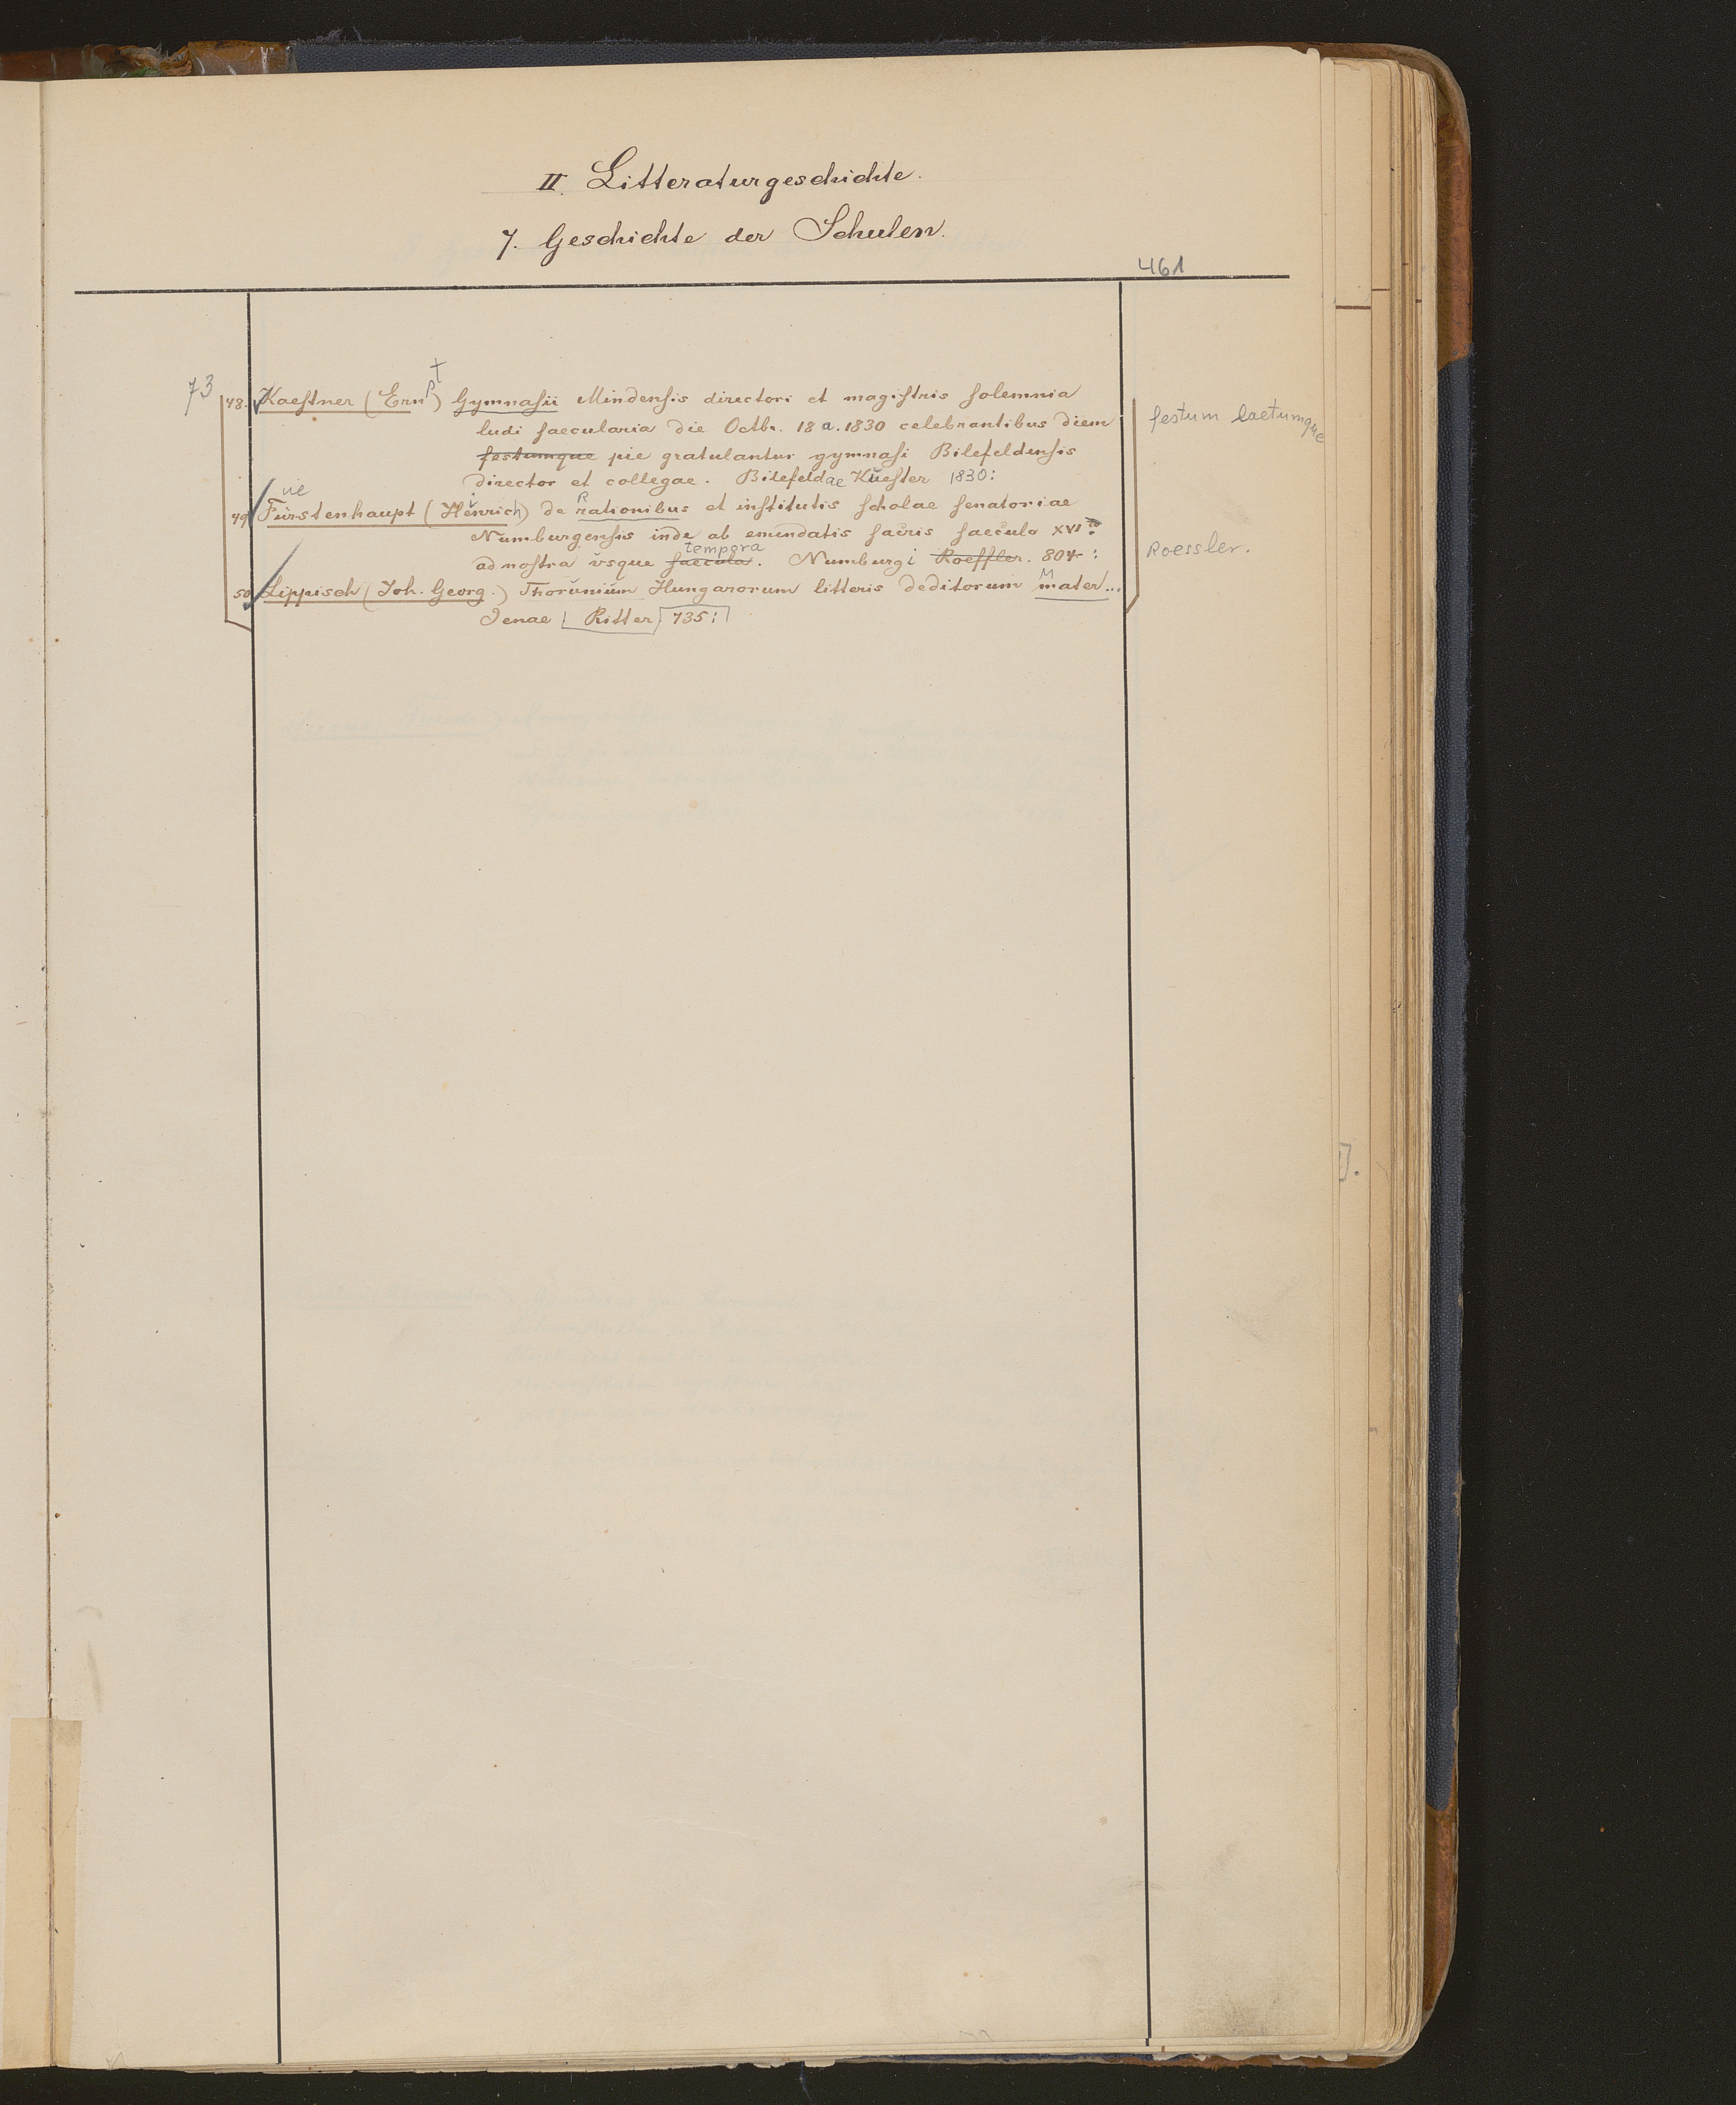 II. Litteraturgeschichte.
7. Geschichte der Schulen.
461
73
48. Kaeſtner (Ernſt) Gymnaſii Mindenſis directori et magiſtris ſolemnia
ludi ſaecularia die Octbr. 18 a. 1830 celebrantibus diem
festumque pie gratulantur gymnaſi Bilefeldenſis
festum laetumque
director et collegae. Bilefeldae Kueſter 1830:
49 Fürstenhaupt (Heinrich) de Rationibus et inſtitutis ſcholae ſenatoriae
Numburgenſis inde ab emendatis ſacris ſaeculo XVI to
tempora
ad noſtra usque ſaecula. Numburgi Roeſſler. 804:
Roessler.
50 Lippisch (Joh. Georg.) Thorunium Hungarorum litteris deditorum Mater...
Jenae Ritter 735: